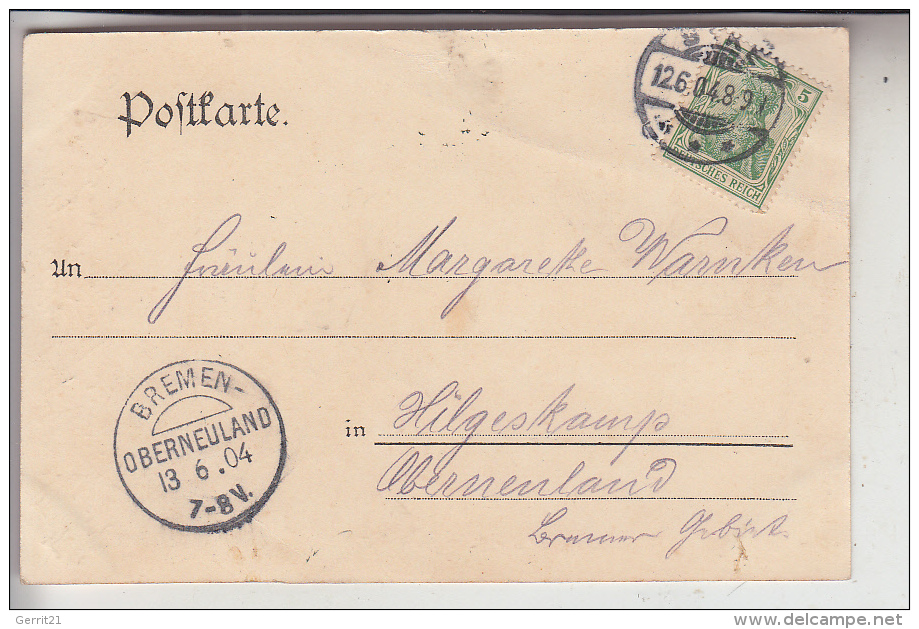 Postkarte.
12.6.04.8-9
5
DEUTSCHES REICH
An Fräulein Margarete Warnken
BREMEN-
OBERNEULAND
13 6.04
7-8V.
in Hilgeskamp
Oberneuland
Bremer Gebiet.
Gerrit21
www.delcampe.net